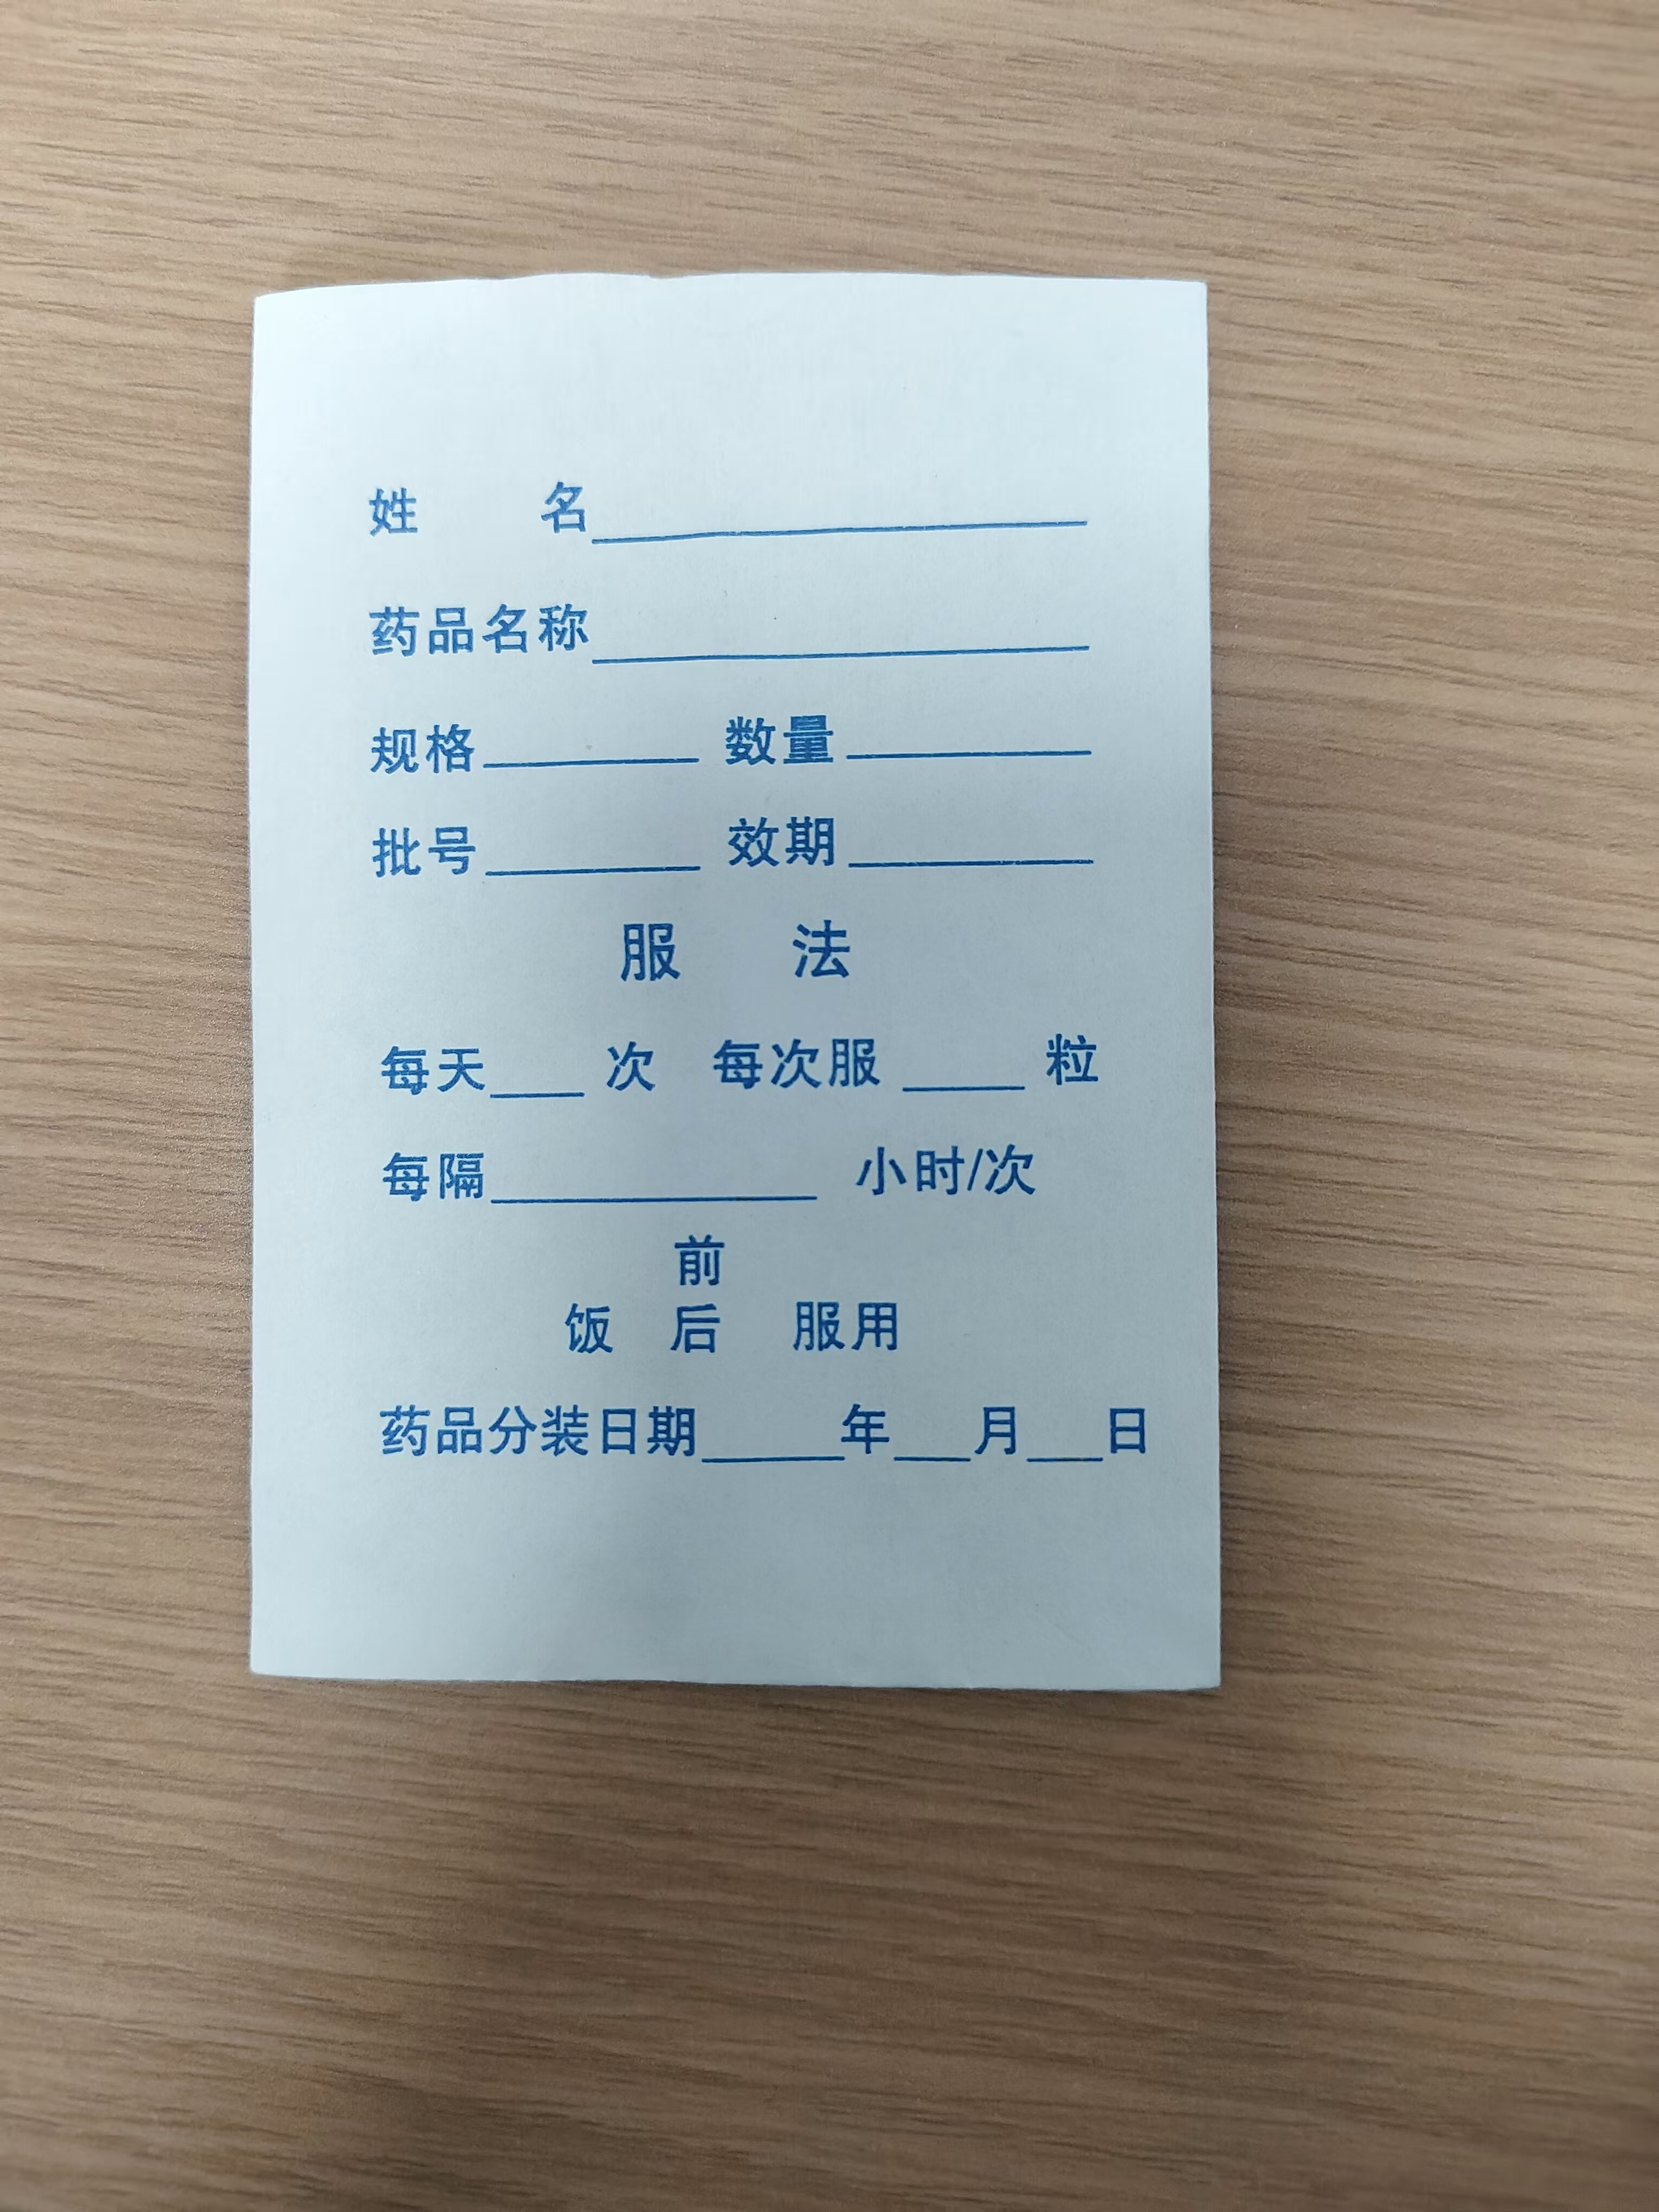 姓 名
药品名称
规格 数量
批号 效期
服 法
每天 次 每次服 粒
每隔 小时/次
前
饭 后 服用
药品分装日期 年 月 日